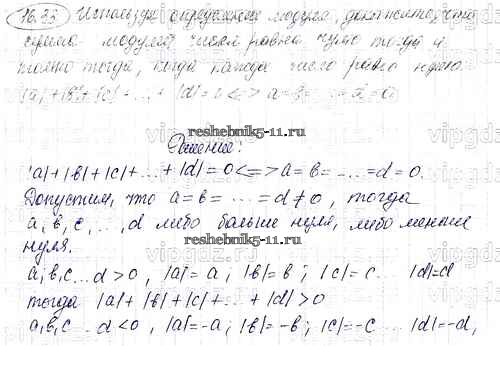 16.33 Используя определение модуля, докажите, что
сумма модулей чисел равна нулю тогда и
только тогда, когда каждое число равно нулю.
|a|+|b|+|c|+...+|d|=0<=>a=b=...=d=0.
reshebnik5-11.ru
Решение:
|a|+|b|+|c|+...+|d|=0<=>a=b=...=d=0.
Допустим, что a=b=...=d≠0, тогда
a,b,c,...,d либо больше нуля, либо меньше
нуля.
reshebnik5-11.ru
a,b,c...d>0, |a|=a; |b|=b; |c|=c... |d|=d
тогда |a|+|b|+|c|+...+|d|>0
a,b,c...d<0, |a|=-a; |b|=-b; |c|=-c... |d|=-d,